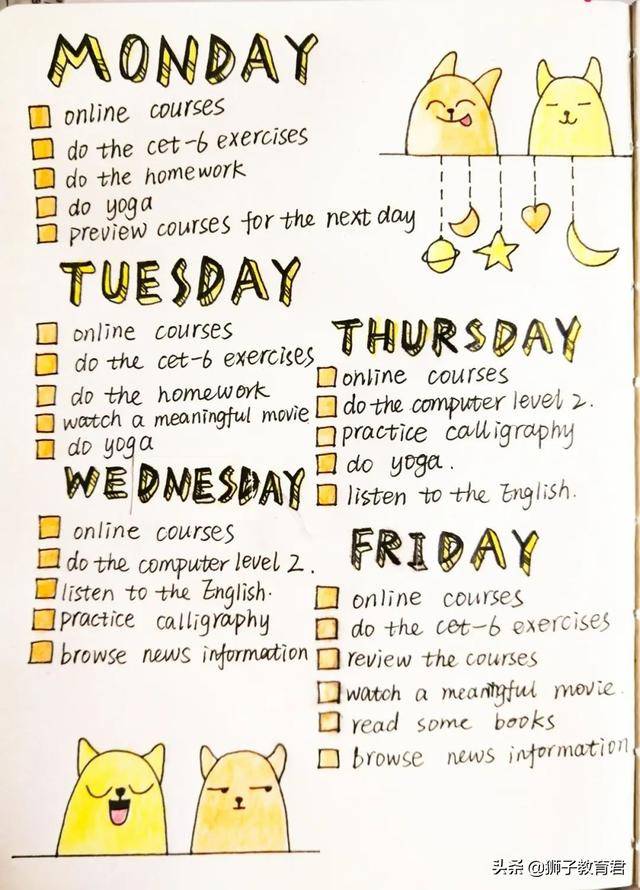 MONDAY
online courses
do the cet-6 exercises
do the homework
do yoga
preview courses for the next day
TUESDAY
online courses
do the cet-6 exercises
do the homework
watch a meaningful movie
do yoga
WEDNESDAY
online courses
do the computer level 2.
listen to the English.
practice calligraphy
browse news information
THURSDAY
online courses
do the computer level 2.
practice calligraphy
do yoga.
listen to the English.
FRIDAY
online courses
do the cet-6 exercises
review the courses
watch a meaningful movie.
read some books
browse news information
头条 @狮子教育君